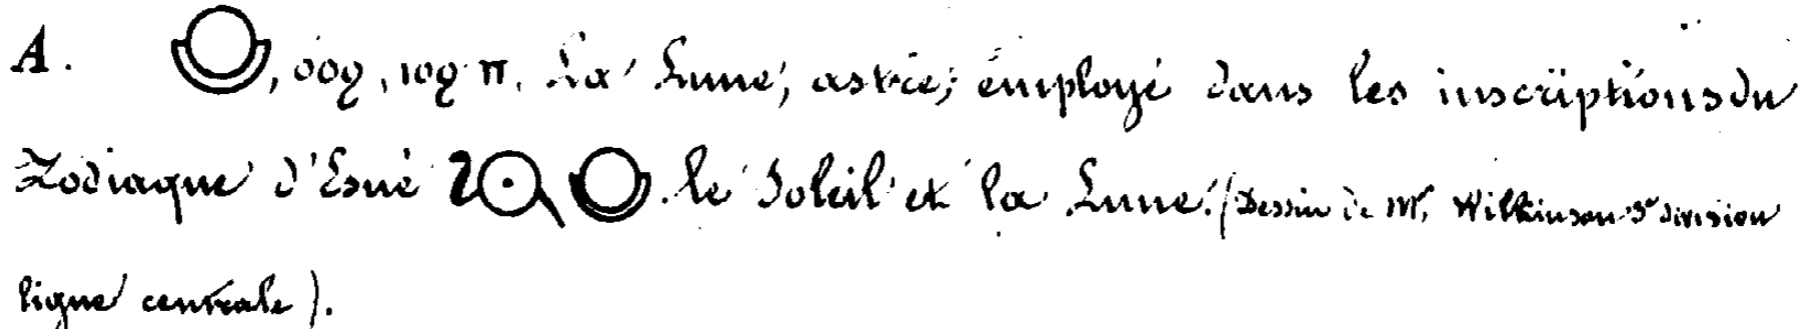 A. , ooϩ, ιoϩ π. La Lune, astre; employé dans les inscriptions du
Zodiaque d'Esné le Soleil et la Lune. (Dessin de Mr. Wilkinson 3e division
ligne centrale).